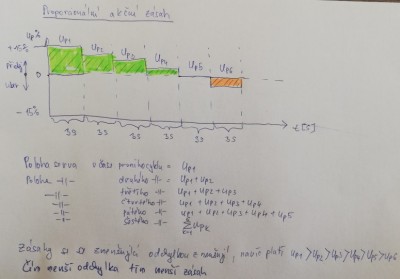 Proporcionální akční zásah
Up%
+15%
Up1 Up2 Up3 Up4 Up5 Up6
Přidej
0
Uber
-15%
3s 3s 3s 3s 3s 3s
t[s]
Poloha serva v čase prvního cyklu = Up1
Poloha -||- druhého -||- = Up1 + Up2
-||- třetího -||- Up1 + Up2 + Up3
-||- čtvrtého -||- Up1 + Up2 + Up3 + Up4
-||- pátého -||- Up1 + Up2 + Up3 + Up4 + Up5
-||- šestého -||- Σ Upk
Zásahy se se zmenšující odchylkou zmenšují, navíc platí Up1 > Up2 > Up3 > Up4 > Up5 > Up6
Čím menší odchylka tím menší zásah